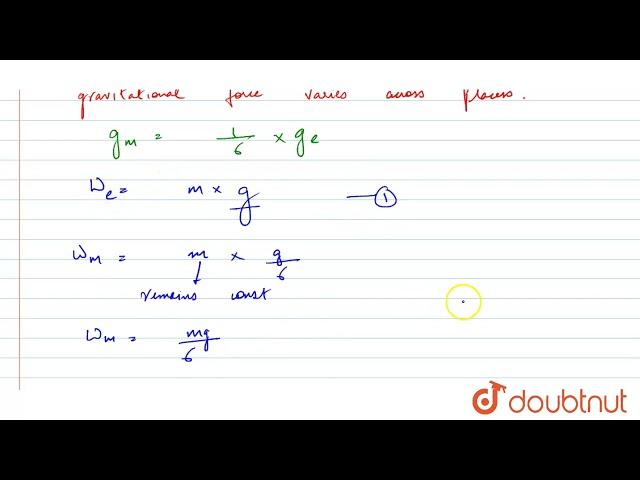 gravitational force varies across places.
gm = 1/6 × ge
We = m × g —①
Wm = m × g/6
↓
remains const
Wm = mg/6
doubtnut